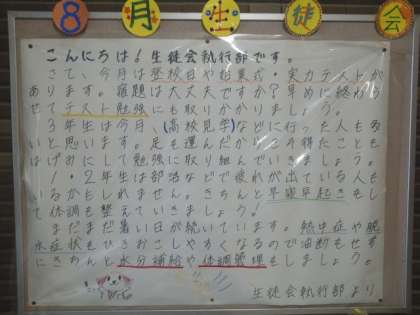 8月生徒会
こんにちは！生徒会執行部です。
さて、今月は登校日や始業式・実力テストが
あります。宿題は大丈夫ですか？早めに終わら
せてテスト勉強にも取りかかりましょう。
3年生は今月、(高校見学)などに行った人も多
いと思います。足を運んだからこそ得たことも
はげみにして勉強に取り組んでいきましょう。
1・2年生は部活などで疲れが出ている人も
いるかもしれません。きちんと早寝早起きもし
て体調も整えていきましょう！
まだまだ暑い日が続いています。熱中症や脱
水症状もひきおこしやすくなるので油断もせず
にきちんと水分補給や体調管理もしましょう。
生徒会執行部より